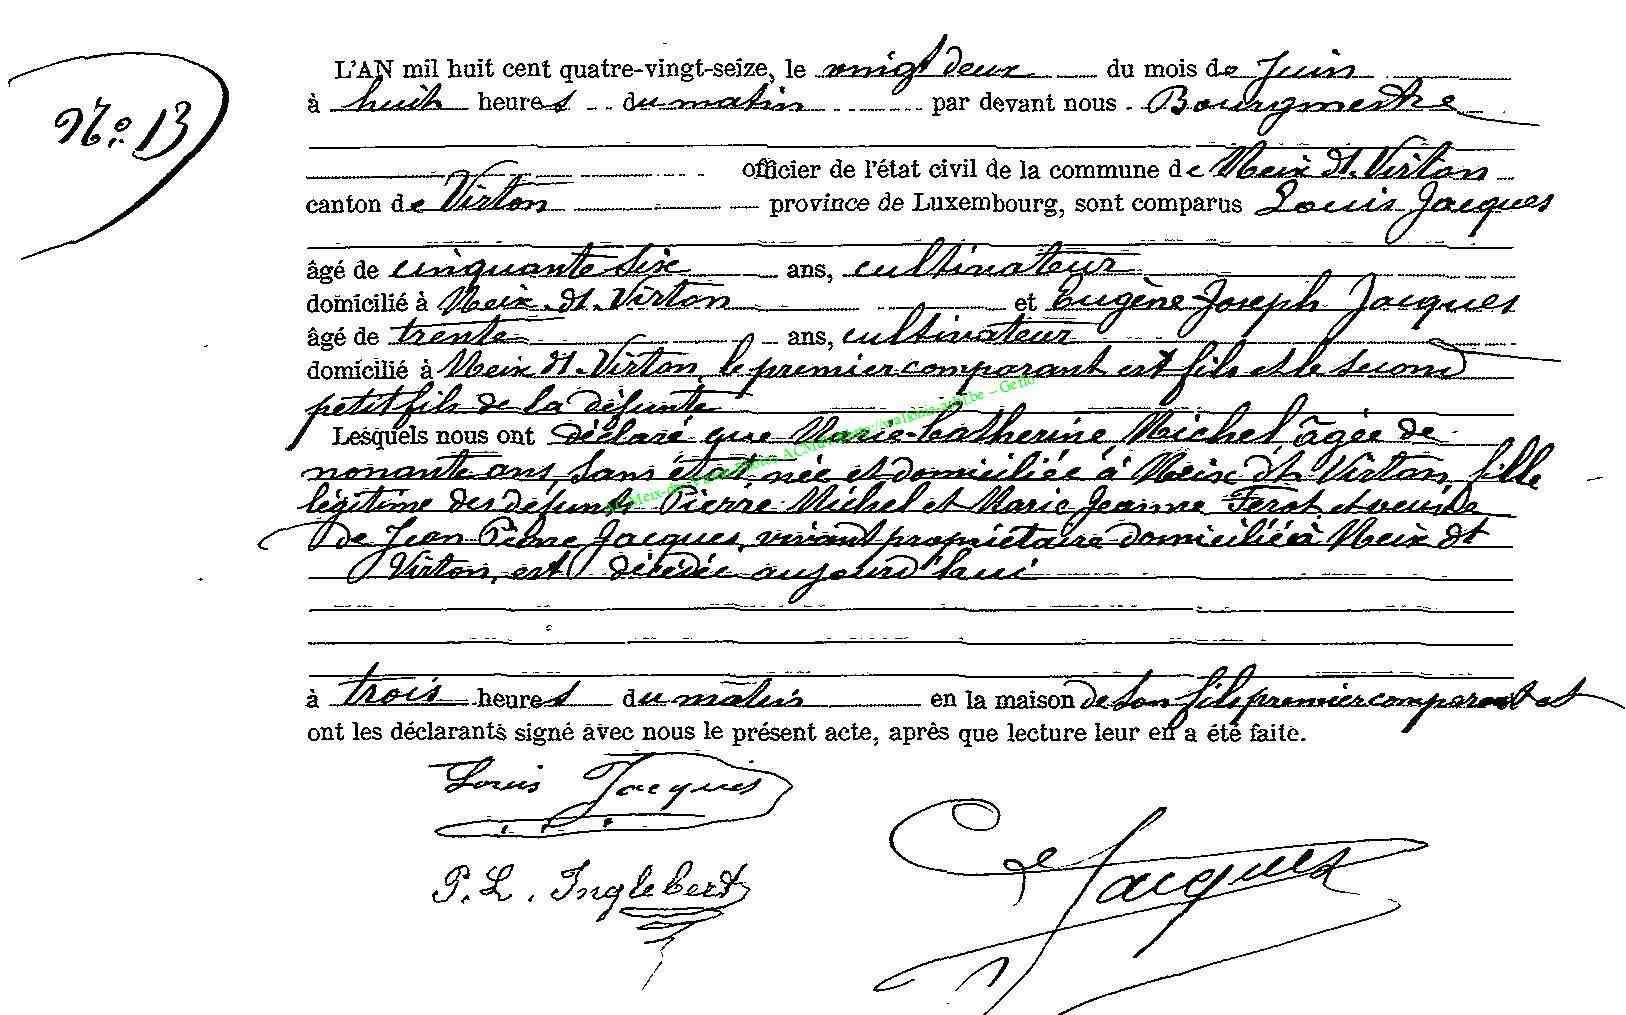 N.o 13
L'AN mil huit cent quatre-vingt-seize, le vingt deux du mois de Juin
à huit heures du matin par devant nous Bourgmestre
officier de l'état civil de la commune de Meix dt. Virton
canton de Virton province de Luxembourg, sont comparus Louis Jacques
âgé de cinquante six ans, cultivateur
domicilié à Meix dt. Virton et Eugène Joseph Jacques
âgé de trente ans, cultivateur
domicilié à Meix dt. Virton, le premier comparant est fils et le second
petit fils de la défunte
Lesquels nous ont déclaré que Marie-Catherine Michel âgée de
nonante ans, sans état née et domiciliée à Meix dt Virton, fille
légitime des défunts Pierre Michel et Marie Jeanne Ferot et veuve
de Jean Pierre Jacques, vivant propriétaire domicilié à Meix dt
Virton, est décédée aujourd'hui
à trois heures du matin en la maison de son fils premier comparant et
ont les déclarants signé avec nous le présent acte, après que lecture leur en a été faite.
Louis Jacques
P. L. Inglebert
E Jacques